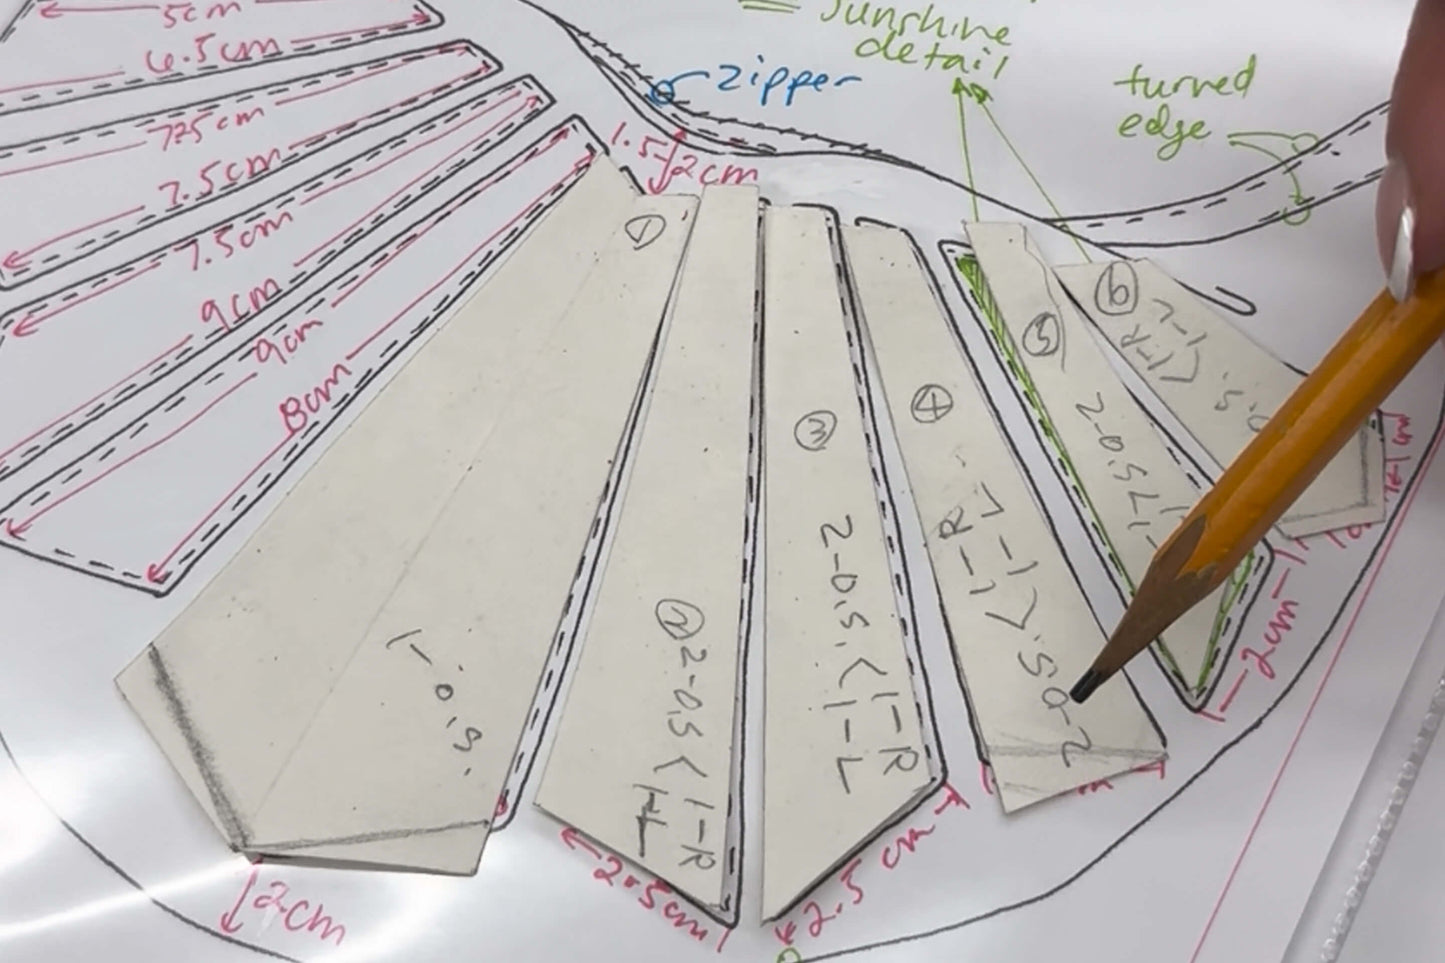 5cm
6.5cm
7.25cm
7.5cm
7.5cm
9cm
9cm
8cm
zipper
1.5-/2cm
sunshine
detail
turned
edge
1
1-o.s.
2cm
2
2-0.5<1-R
1-L
2.5cm
3
2-0.5.<1-R
1-L
2.5cm
4
2-0.5.<1-R
1-L
5
2-0.5
6
<1-R
1-L
2cm
1cm